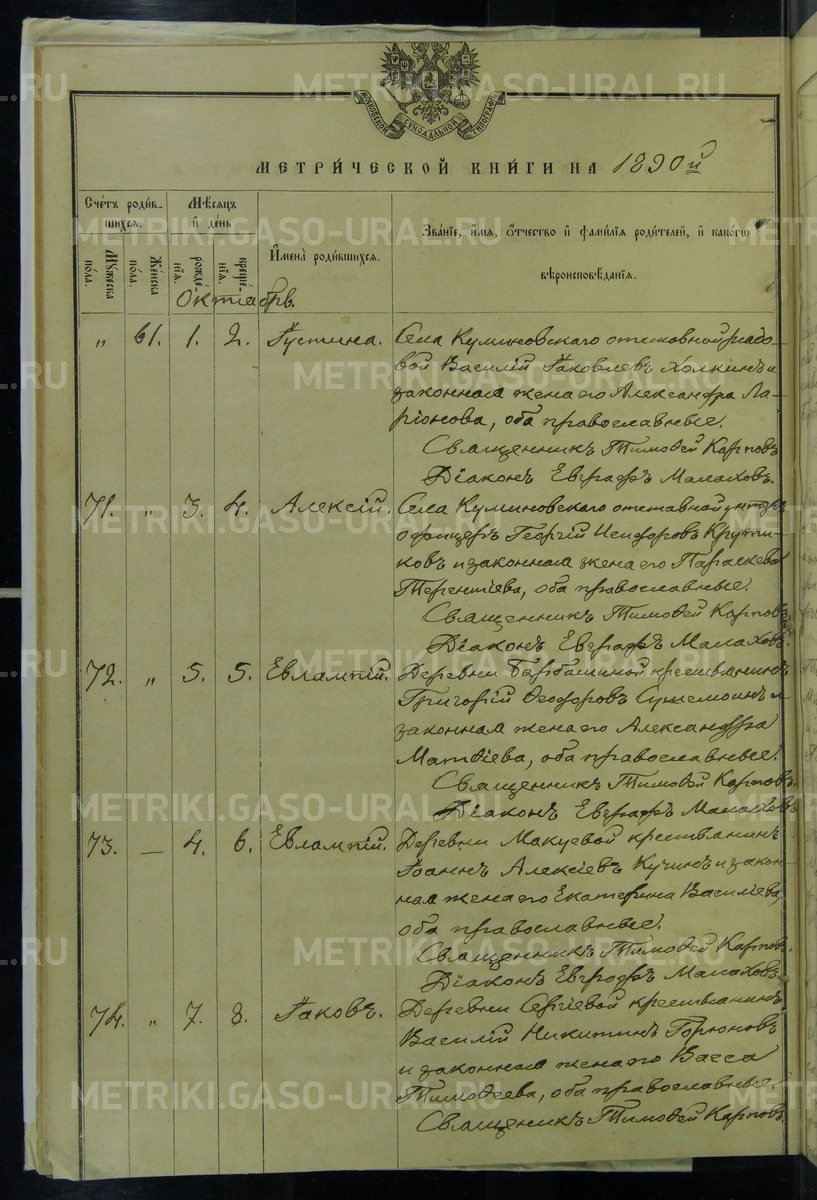 МОСКОВСКОЙ СѴНОДАЛЬНОЙ ТИПОГРАФІИ
МЕТРИ́ЧЕСКОЙ КНИ́ГИ НА 1890й
Сче́тъ роди́в-
шихся.
Мѣ́сяцъ
и҆ де́нь
Му́жеска по́ла.
Же́нска по́ла.
рожде́нїя.
креще́нїя.
И҆мена̀ роди́вшихся.
Зва́нїе, и҆́мя, ѻ҆́тчество и҆ фами́лїя роди́телей, и҆ како́гѡ
вѣроисповѣ́данїя.
Октабрь.
„ 61. 1. 2. Іустина. Села Куминовскаго отставной рядо-
вой Василій Іаковлевъ Холкинъ и
законная жена его Александра Ла-
ріонова, оба православные.
Священникъ Тимоѳей Карповъ
Діаконъ Евграфъ Малаховъ.
71. „ 3. 4. Алексій. Села Куминовскаго отставной унтеръ
офицеръ Георгій Исидоровъ Крути-
ковъ и законная жена его Параскева
Терентіева, оба православные.
Священникъ Тимоѳей Карповъ.
Діаконъ Евграфъ Малаховъ.
72. „ 5. 5. Евлампій. Деревни Барбашиной крестьянинъ
Григорій Ѳеодоровъ и
законная жена его Александра
Матѳіева, оба православные.
Священникъ Тимоѳей Карповъ.
Діаконъ Евграфъ Малаховъ
73. — 4. 6. Евлампій. Деревни Макуевой крестьянинъ
Іоаннъ Алексіевъ Кучинъ и закон-
ная жена его Екатерина Василіева,
оба православные.
Священникъ Тимоѳей Карповъ.
Діаконъ Евграфъ Малаховъ.
74. „ 7. 8. Іаковъ. Деревни Сергіевой крестьянинъ
Василій Никитинъ Горюновъ
и законная жена его Васса
Тимоѳеева, оба православные.
Священникъ Тимоѳей Карповъ.
METRIKI.GASO-URAL.RU